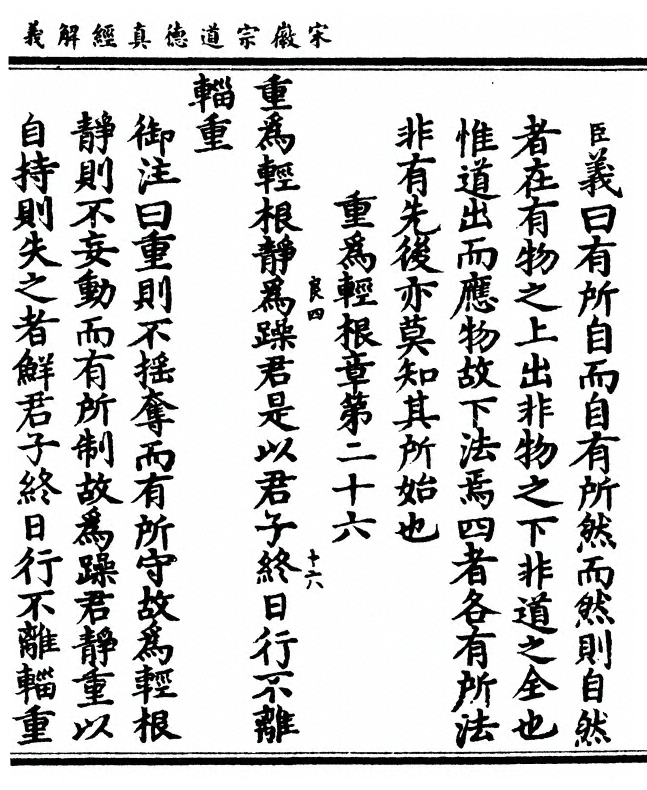 宋徽宗道德真經解義
臣義曰有所自而自有所然而然則自然
者在有物之上出非物之下非道之全也
惟道出而應物故下法焉四者各有所法
非有先後亦莫知其所始也
重爲輕根章第二十六
良四
十六
重爲輕根靜爲躁君是以君子終日行不離
輜重
御注曰重則不搖奪而有所守故爲輕根
靜則不妄動而有所制故爲躁君靜重以
自持則失之者鮮君子終日行不離輜重